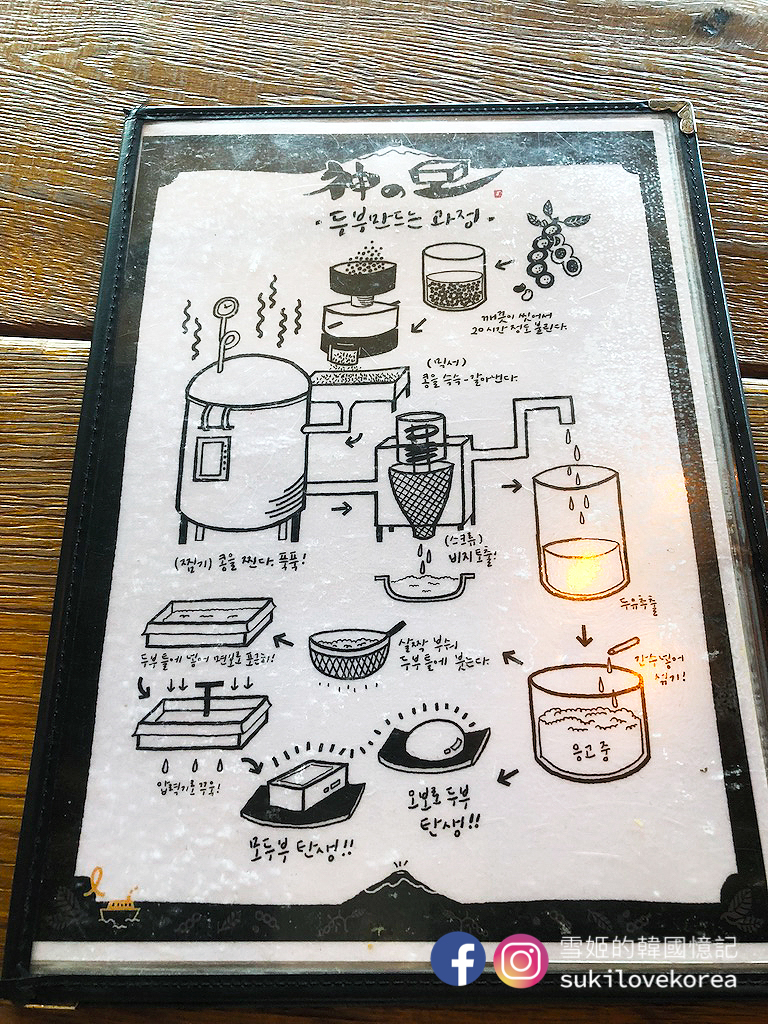 神の目
·두부만드는 과정·
깨끗이 씻어서
20시간 정도 불린다.
(믹서)
콩을 슥슥-갈아낸다.
(찜기) 콩을 찐다. 푹푹!
(스크류)
비지토출!
두유추출
간수넣어
섞기!
응고 중
살짝 부숴
두부 틀에 붓는다.
두부 틀에 넣어 면보로 포근히!
압력기로 꾸욱!
모두부 탄생!!
오보로 두부
탄생!!
雪姬的韓國憶記
sukilovekorea